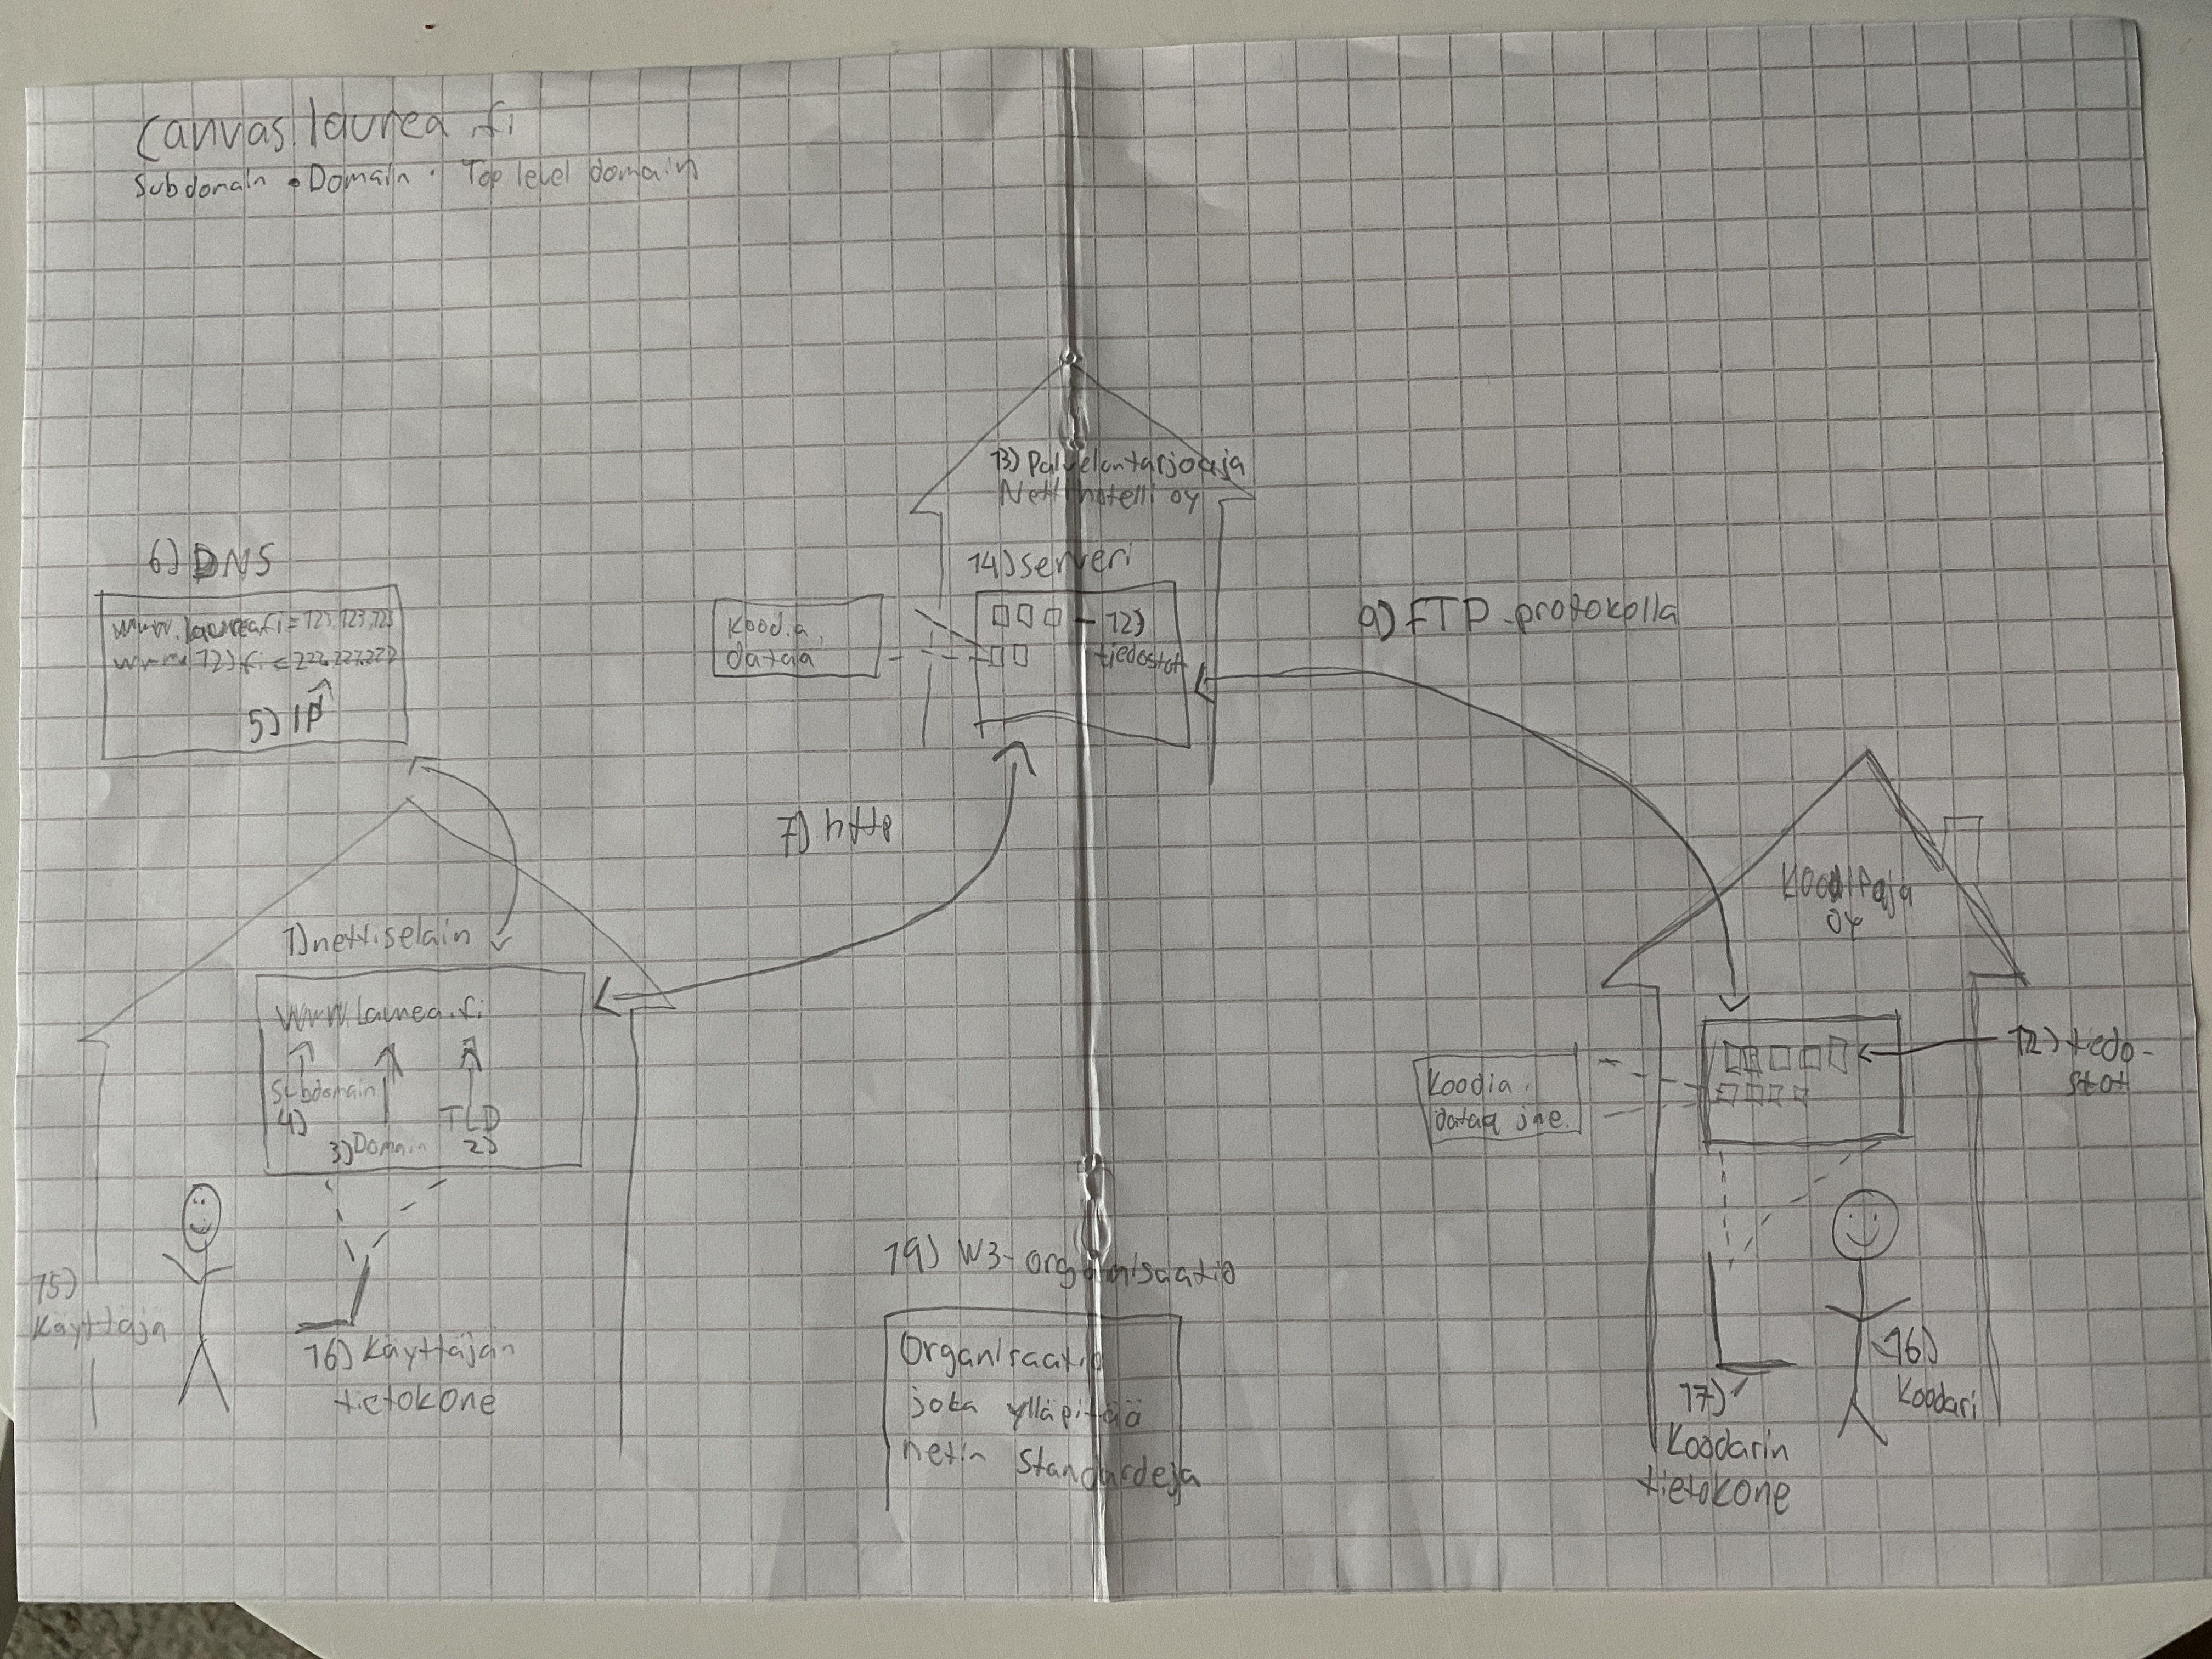 Canvas.laurea.fi
Subdomain • Domain . Top level domain
6) DNS
www.laurea.fi = 123.123.123
5) IP
1) nettiselain
www.laurea.fi
Subdomain
4)
3) Domain
TLD
2)
15)
Käyttäjä
16) Käyttäjän
tietokone
7) http
Koodia,
dataa
13) Palveluntarjoaja
Netinhotelli oy
14) serveri
12)
tiedostot
9) FTP protokolla
19) W3-organisaatio
Organisaatio
joka ylläpitää
netin standardeja
Koodia,
dataa jne.
KoodiPaja
oy
12) tiedo-
stot
17)
Koodarin
tietokone
16)
Koodari